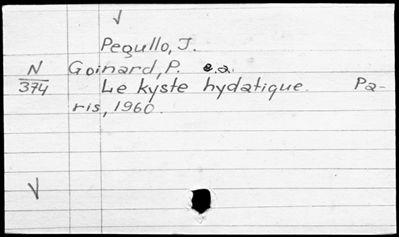 Pegullo, J.
N Goinard, P. e.a.
374 Le kyste hydatique. Pa-
ris, 1960.